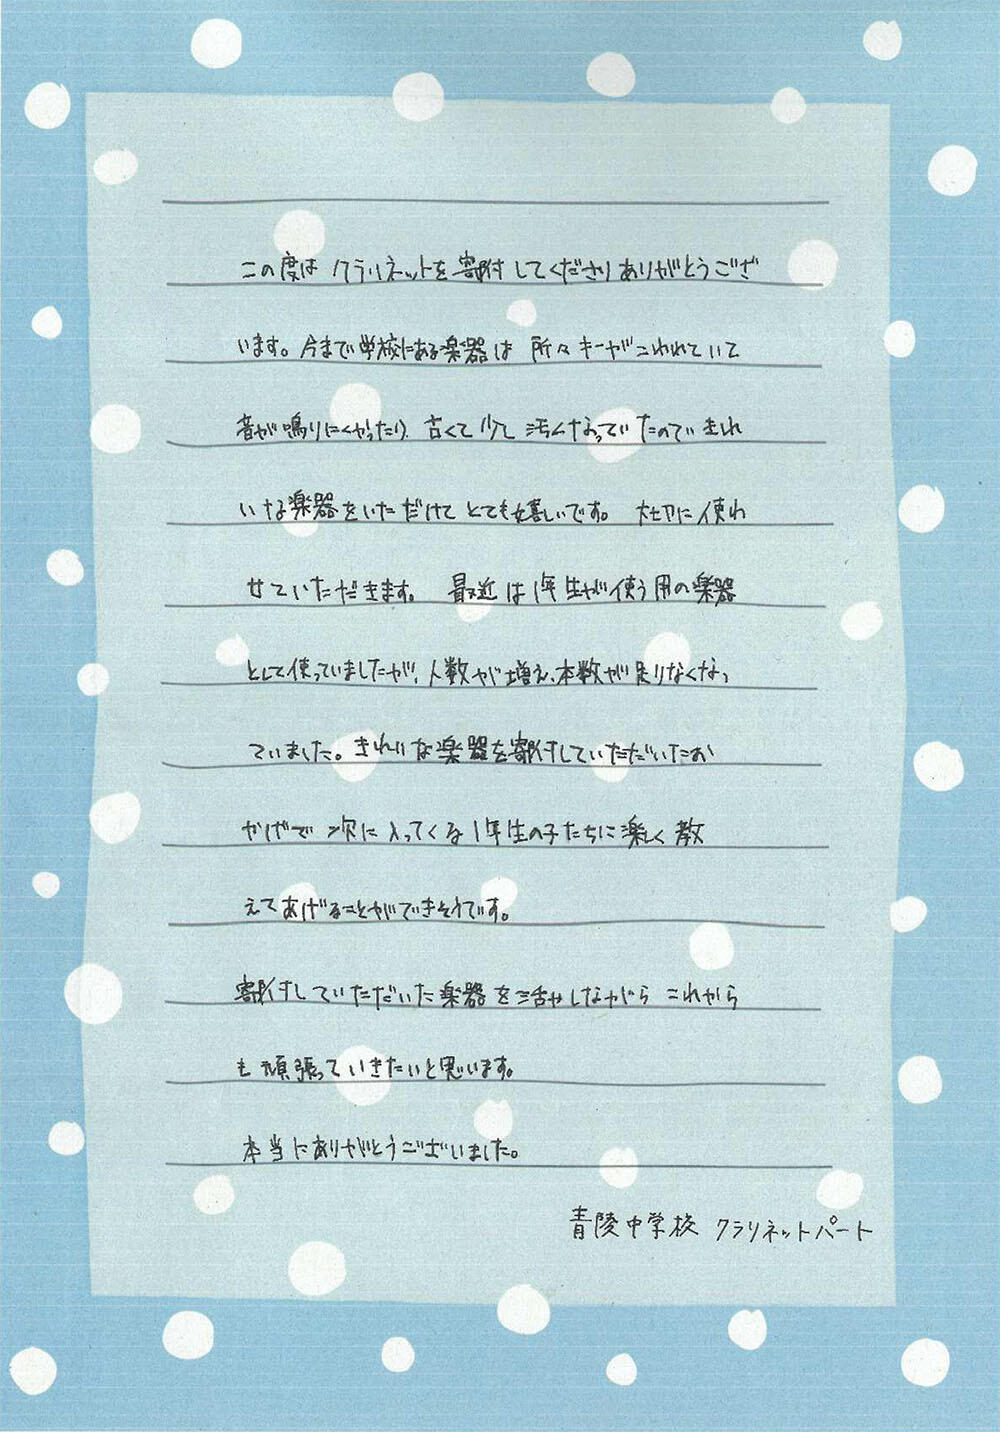 この度は クラリネットを寄附してくださりありがとうござ
います。今まで学校にある楽器は 所々キーがこわれていて
音が鳴りにくかったり、古くて少し汚くなっていたので きれ
いな楽器をいただけてとても嬉しいです。 大切に使わ
せていただきます。 最近は1年生が使う用の楽器
として使っていましたが、人数が増え、本数が足りなくなっ
ていました。きれいな楽器を寄附していただいたお
かげで 次に入ってくる1年生の子たちに楽しく教
えてあげることができそうです。
寄附していただいた楽器を活かしながら これから
も頑張っていきたいと思います。
本当にありがとうございました。
青陵中学校 クラリネットパート